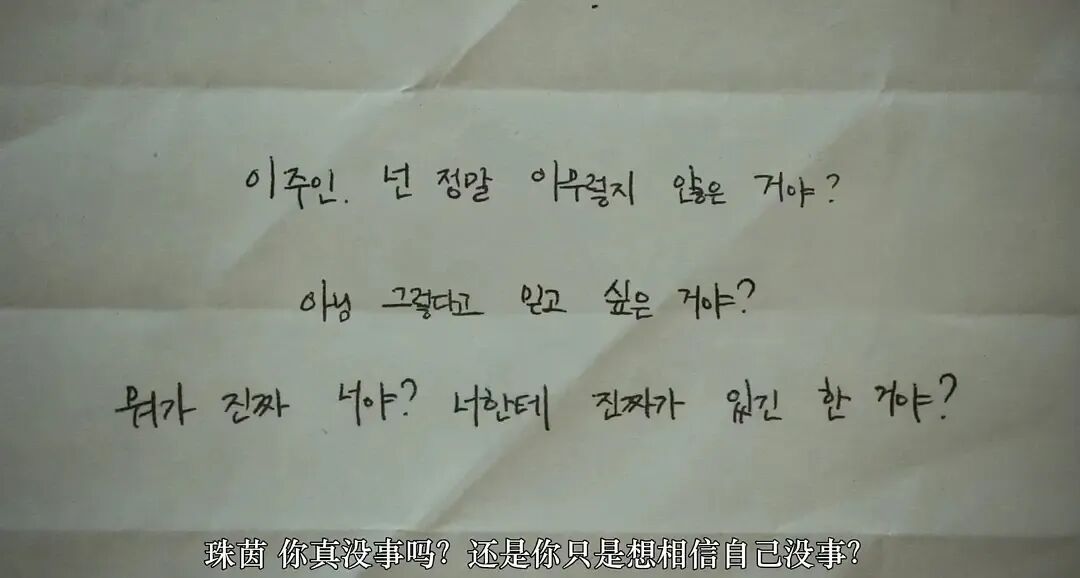 이주인. 넌 정말 아무렇지 않은 거야?
아님 그렇다고 믿고 싶은 거야?
뭐가 진짜 너야? 너한테 진짜가 있긴 한 거야?
珠茵 你真没事吗？还是你只是想相信自己没事？